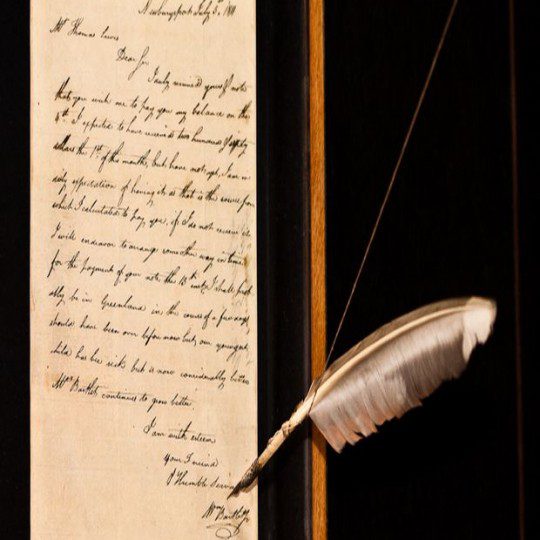 Newburyport July 5th
Mr Thomas
Dear Sir
I duly received yours of
that you wish me to pay you my balance on the
8th I expected to have received two hundred & eighty
the 1st of this month, but have not yet, I am in
expectation of having it as that is the source from
which I calculated to pay you, if I do not receive
I will endeavor to arrange some other way in time
for the payment of your note the 13th inst, I shall
ably be in Greenland in the course of a few days
should have been over before now but our youngest
child has been sick but is now considerably better
Mrs Bartlet continues to grow better
I am with esteem
your Friend
& Humble
Wm Bartlet